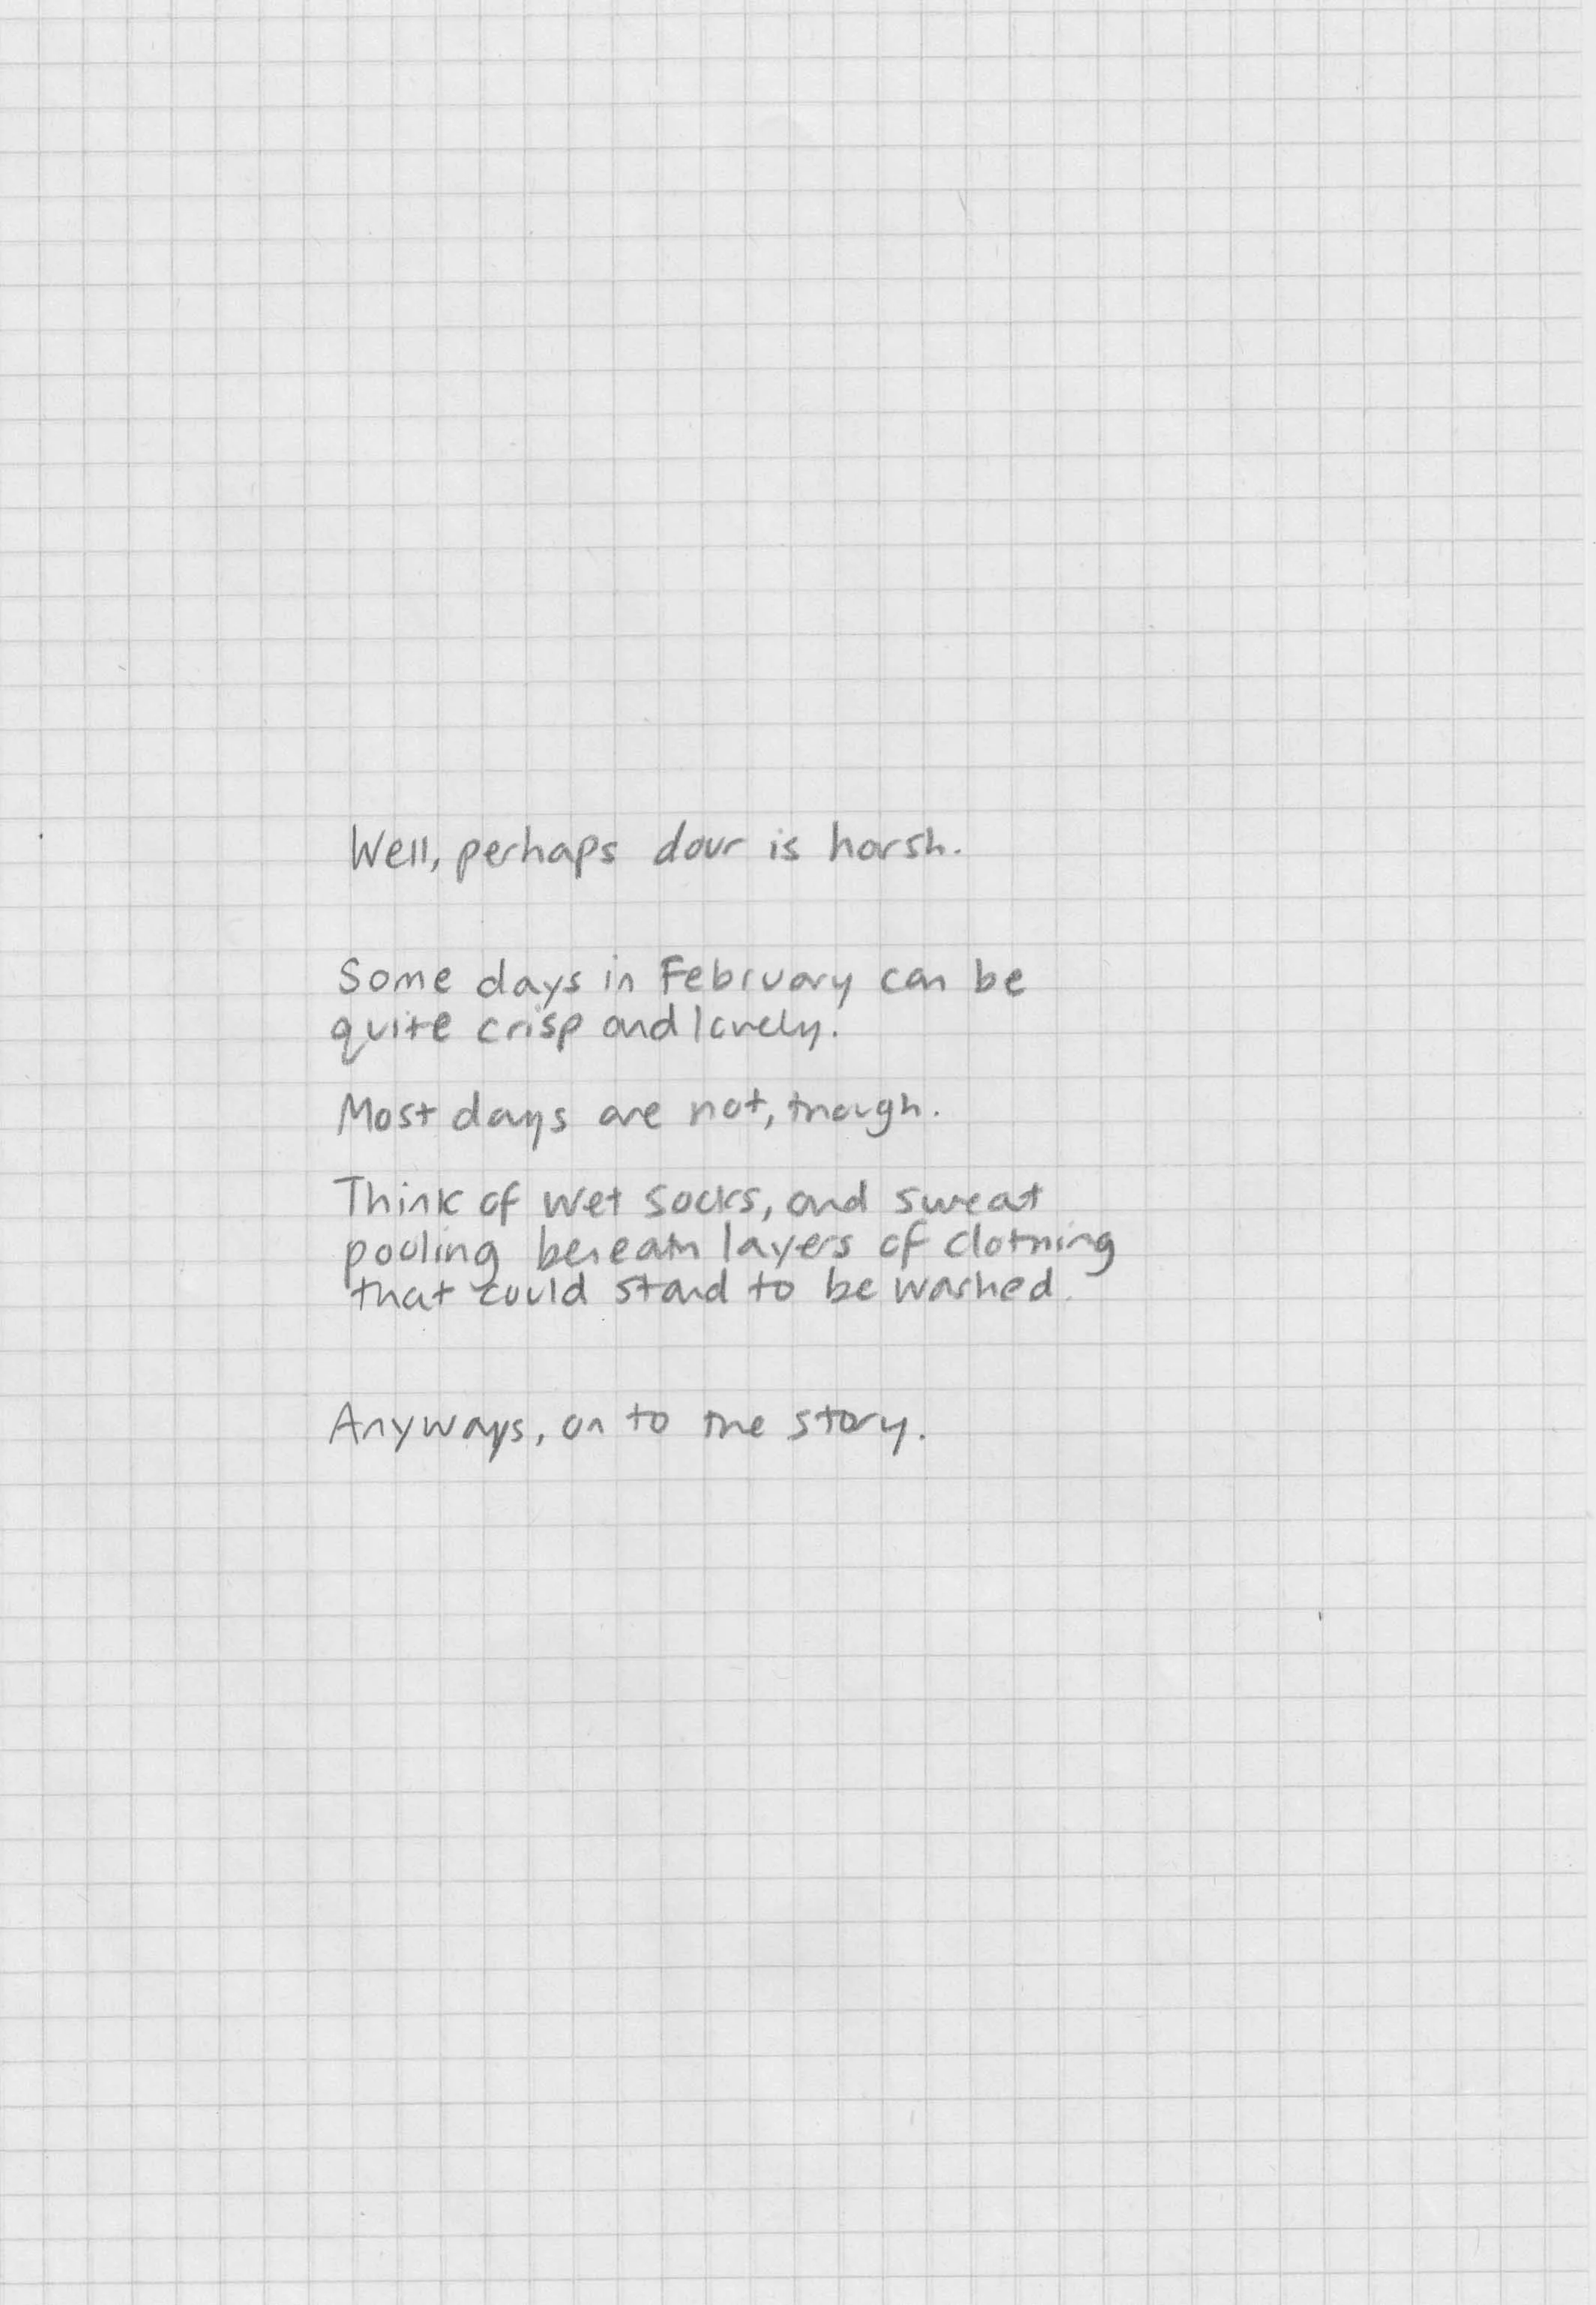 Well, perhaps dour is harsh.
Some days in February can be
quite crisp and lovely.
Most days are not, though.
Think of wet socks, and sweat
pooling beneath layers of clothing
that could stand to be washed.
Anyways, on to the story.